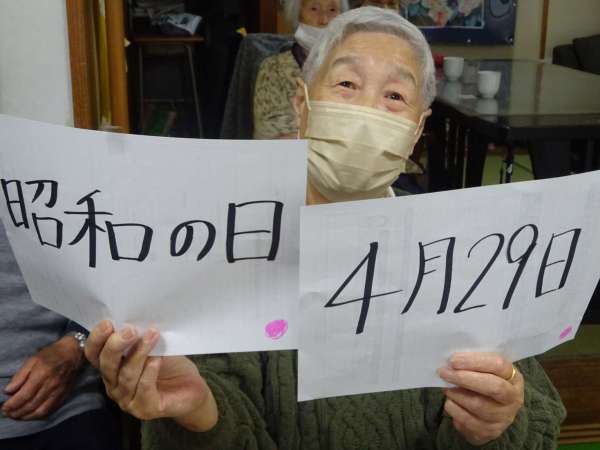 昭和の日
4月29日